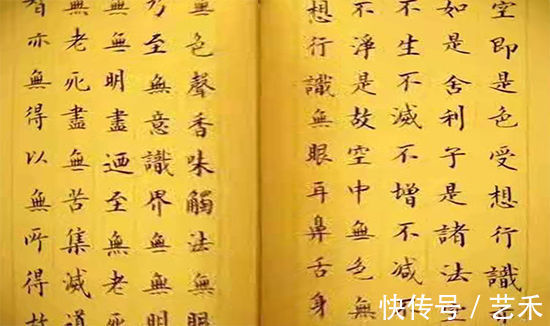 空即是色受想行識
如是舍利子是諸法
不生不滅不增不減
不淨是故空中無色無
想行識無眼耳鼻舌身
無色聲香味觸法無
乃至無意識界無無明
無無明盡迺至無老死
無老死盡無苦集滅道
智亦無得以無所得故
快传号 / 艺禾